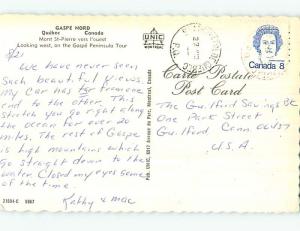 GASPE NORD
Québec Canada
Mont St-Pierre vers l'ouest
Looking west, on the Gaspé Peninsula Tour
8/21
We have never seen
such beautiful views.
My car has far from one
end to the other. This
stretch you go right along
the ocean for over 20
miles. The rest of Gaspe
is high mountains which
go straight down to the
water. Closed my eyes some
of the time.
Kathy & Mac
21034-C 5967
UNIC
MONTREAL
Pub. UNIC, Montreal, Canada
Carte Postale
Post Card
Canada 8
The Guilford Savings Bk
One Park Street
Guilford Conn 06437
U.S.A.